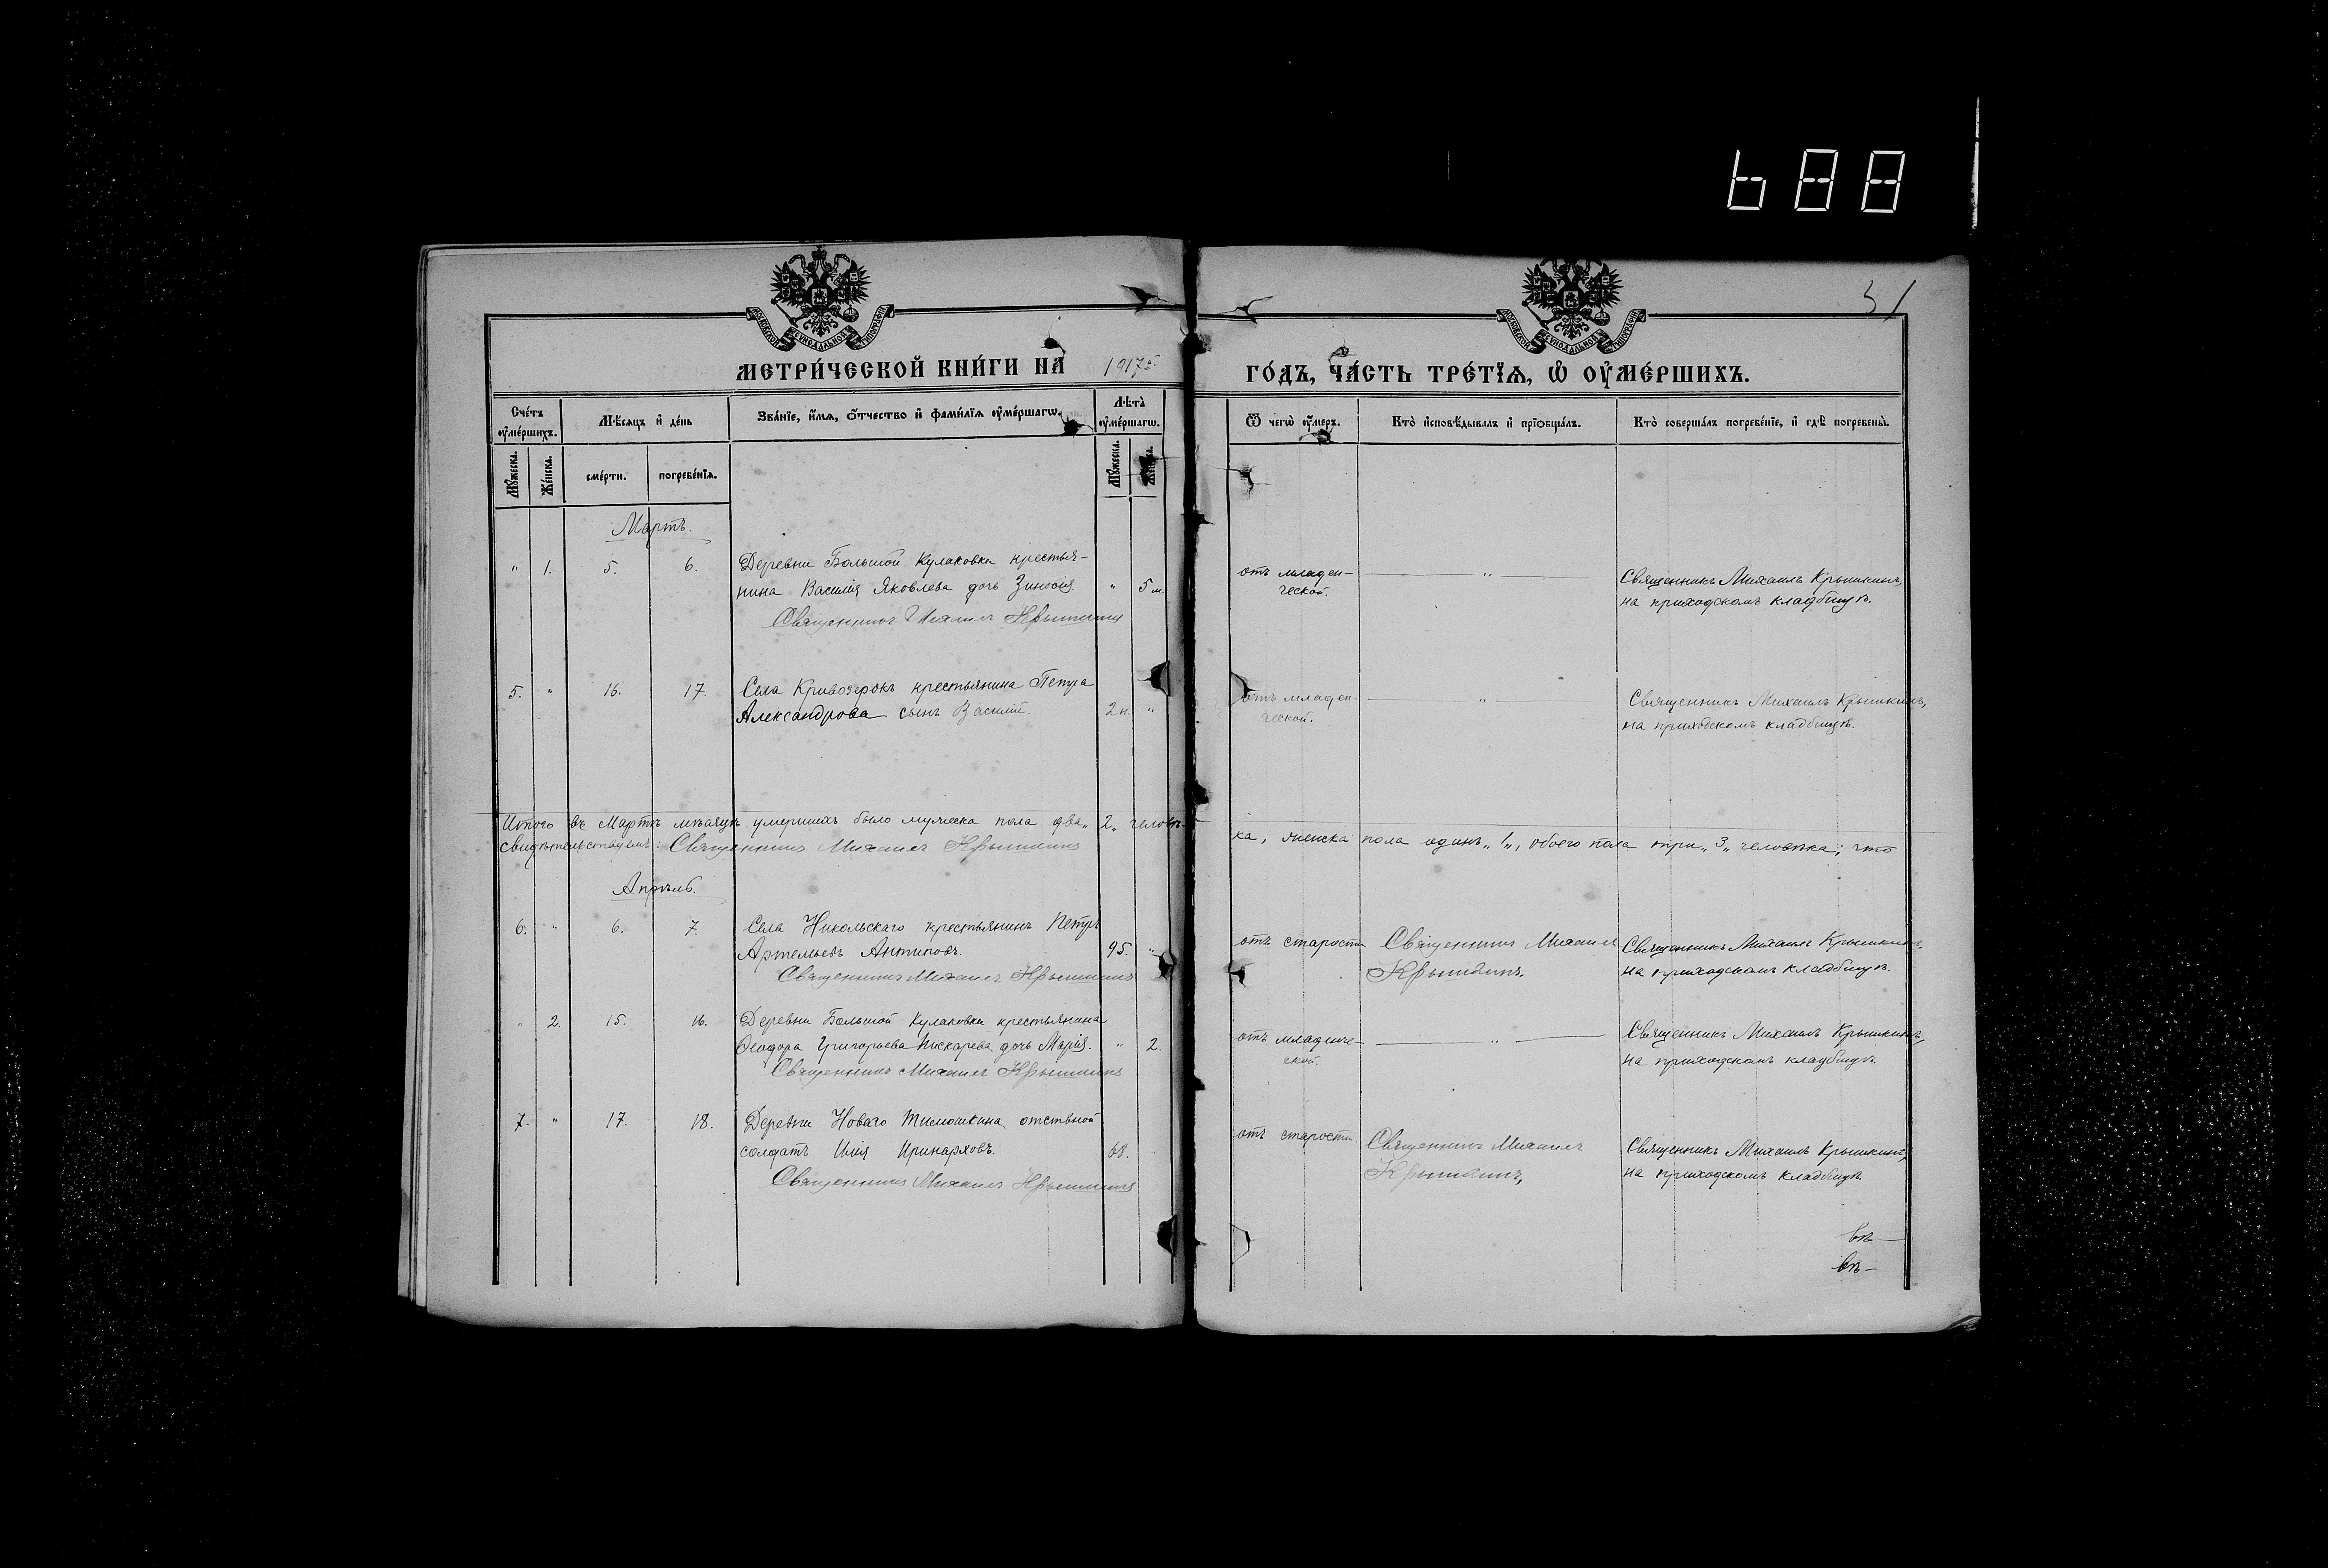 688
31
МОСКОВСКОЙ СѴНОДАЛЬНОЙ ТИПОГРАФІИ
МОСКОВСКОЙ СѴНОДАЛЬНОЙ ТИПОГРАФІИ
МЕТРИ́ЧЕСКОЙ КНИ́ГИ НА 1917 ГО́ДЪ, ЧА́СТЬ ТРЕ́ТЇѦ, Ѡ ОУМЕ́РШИХЪ.
Сче́тъ оуме́ршихъ.
Мѣ́сѧцъ и де́нь
Зва́нїе, и́мѧ, о́тчество и фами́лїѧ оуме́ршагѡ.
Лѣ́та оуме́ршагѡ.
Ѿ чегѡ̀ оу́меръ.
Кто̀ и҆сповѣ́дывалъ и҆ прїѡбща́лъ.
Кто̀ соверша́лъ погребе́нїе, и҆ гдѣ̀ погребены̀.
Мꙋ́жеска.
Же́нска.
сме́рти.
погребе́нїѧ.
Мꙋ́жеска.
Же́нска.
Мартъ.
" 1. 5. 6. Деревни Большой Кулаковки крестья-
нина Василія Яковлева дочь Зиновія. " 5 м.
Священникъ Михаилъ Крышкинъ
отъ младен-
ческой.
"
Священникъ Михаилъ Крышкинъ,
на приходскомъ кладбищѣ.
5. " 16. 17. Села Кривозерокъ крестьянина Петра
Александрова сынъ Василій. 2 н. "
отъ младен-
ческой.
"
Священникъ Михаилъ Крышкинъ,
на приходскомъ кладбищѣ.
Итого въ Мартѣ мѣсяцѣ умершихъ было мужеска пола два „2„ человѣ-
ка, женска пола одинъ „1„, обоего пола три „3„ человѣка; что
свидѣтельствуемъ: Священникъ Михаилъ Крышкинъ
Апрѣль.
6. " 6. 7. Села Никольскаго крестьянинъ Петръ
Артемьевъ Антиповъ. 95. "
Священникъ Михаилъ Крышкинъ
отъ старости
Священникъ Михаилъ
Крышкинъ,
Священникъ Михаилъ Крышкинъ,
на приходскомъ кладбищѣ.
" 2. 15. 16. Деревни Большой Кулаковки крестьянина
Ѳеодора Григорьева Пискарева дочь Марія. " 2.
Священникъ Михаилъ Крышкинъ
отъ младенче-
ской.
"
Священникъ Михаилъ Крышкинъ,
на приходскомъ кладбищѣ.
7. " 17. 18. Деревни Новаго Тимошкина отставной
солдатъ Илія Иринарховъ. 68.
Священникъ Михаилъ Крышкинъ
отъ старости.
Священникъ Михаилъ
Крышкинъ,
Священникъ Михаилъ Крышкинъ,
на приходскомъ кладбищѣ.